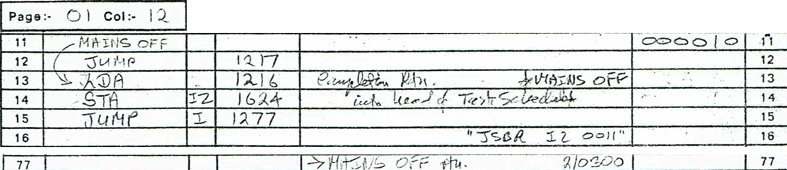 Page:- 01 Col:- 12
11 MAINS OFF 000010 11
12 JUMP 1217 12
13 LDA 1216 Completion Rtn. → MAINS OFF 13
14 STA IZ 1624 into head of Test Schedule 14
15 JUMP I 1277 15
16 "JSBR IZ 0011" 16
77 → MAINS OFF rtn. 2/0300 77